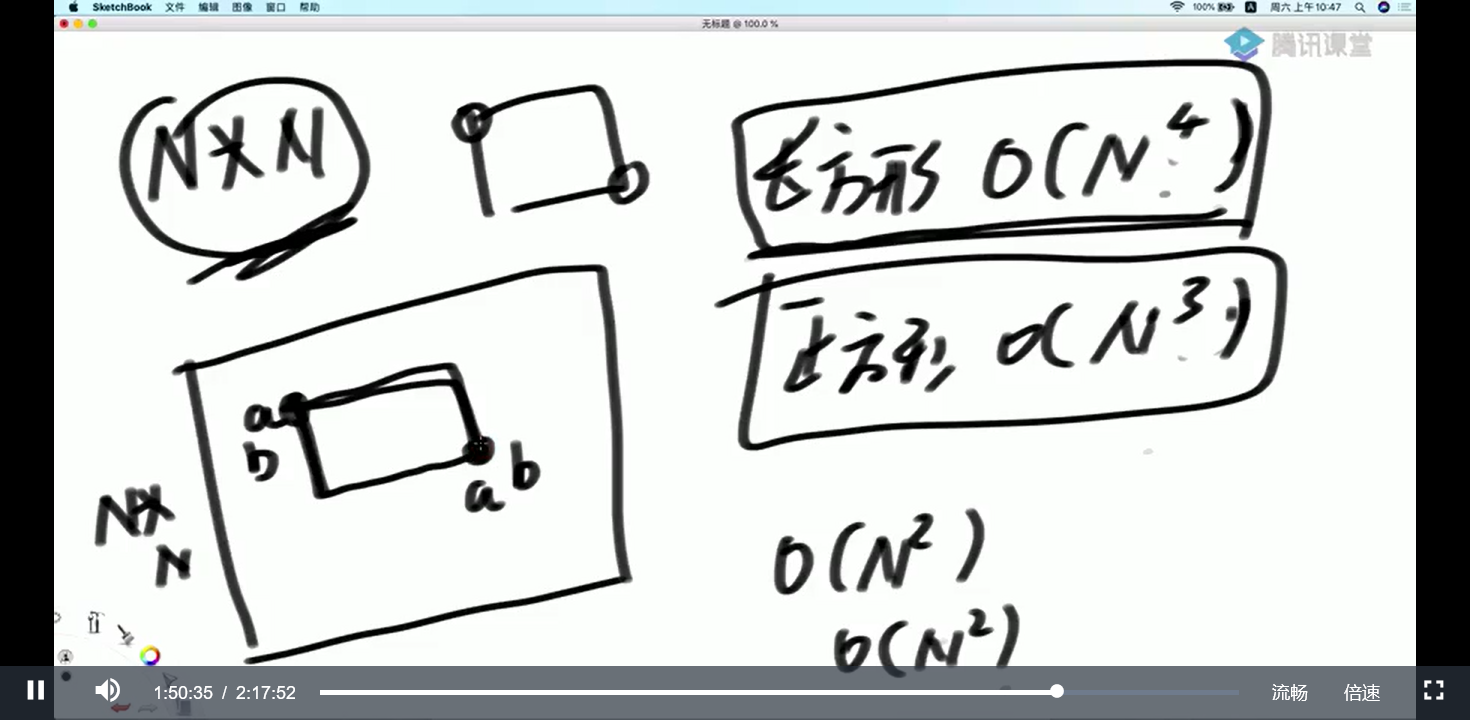 SketchBook 文件 编辑 图像 窗口 帮助
100% 周六 上午10:47
无标题 @ 100.0 %
腾讯课堂
N×N
长方形 O(N^4)
正方形 O(N^3)
a
b
a b
N×
N
O(N^2)
O(N^2)
1:50:35 / 2:17:52 流畅 倍速